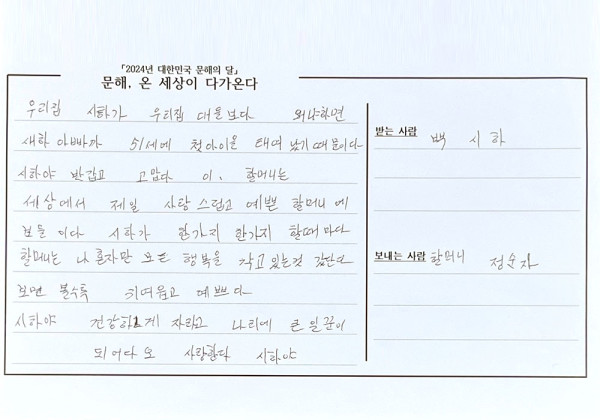 「2024년 대한민국 문해의 달」
문해, 온 세상이 다가온다
우리집 시하가 우리집 대들보다 왜냐하면
새하 아빠까 51세에 첫아이을 태여 났기 때문이다
시하야 반갑고 고맙다 이, 할머니는
세상에서 제일 사랑스럽고 예쁜 할머니 에
보물 이다 시하가 한가지 한가지 할때 마다
할머니는 나 혼자만 모든 행복을 갖고 있는것 같단다
보면 볼수록 귀여웁고 예쁘다
시하야 건강하게 자라고 나라에 큰 일꾼이
되어다오 사랑한다 시하야
받는 사람 백 시하
보내는 사람 할머니 정순자